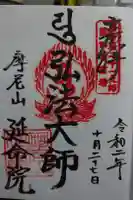 奉拝
令和二年
十月二十七日
弘法大師
摩尼山 延命院